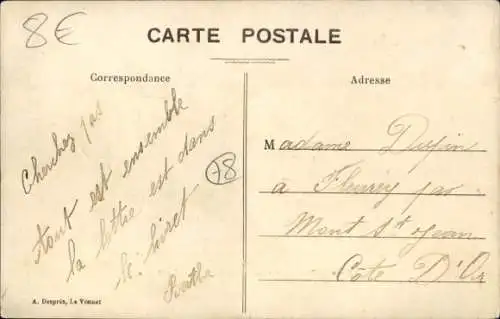 8€
CARTE POSTALE
Correspondance
Adresse
Cherchez pas
tout est ensemble
la lettre est dans
le livret
Berthe
78
Madame Dupin
à Fleurey par
Mont St Jean
Côte D'Or
A. Després, Le Vésinet